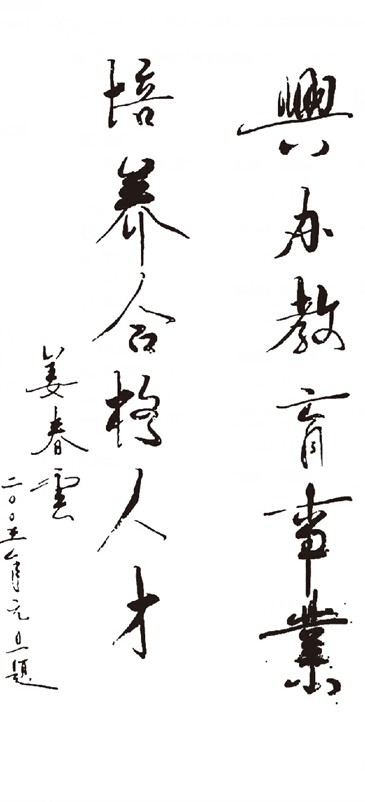 興办教育事業
培养合格人才
姜春雲
二〇〇五年元旦题